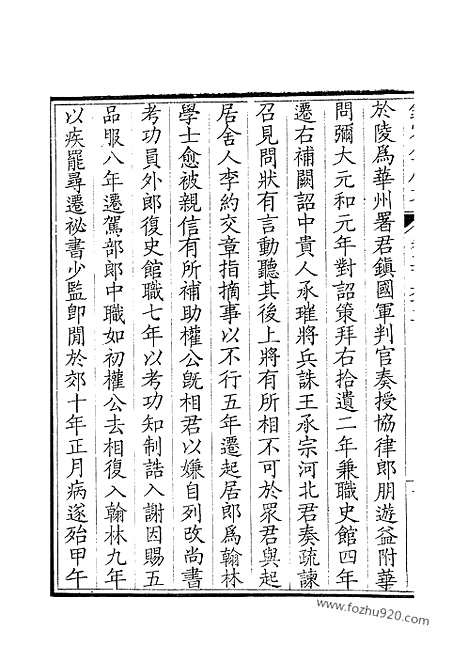 於陵爲華州署君鎭國軍判官奏授協律郎朋遊益附華
問彌大元和元年對詔策拜右拾遺二年兼職史館四年
遷右補闕詔中貴人承璀將兵誅王承宗河北君奏疏諫
召見問狀有言動聽其後上將有所相不可於眾君與起
居舍人李約交章指摘事以不行五年遷起居郎爲翰林
學士愈被親信有所補助權公旣相君以嫌自列改尚書
考功員外郎復史館職七年以考功知制誥入謝因賜五
品服八年遷駕部郎中職如初權公去相復入翰林九年
以疾罷尋遷祕書少監卽閒於郊十年正月病遂殆甲午
www.fozhu920.com